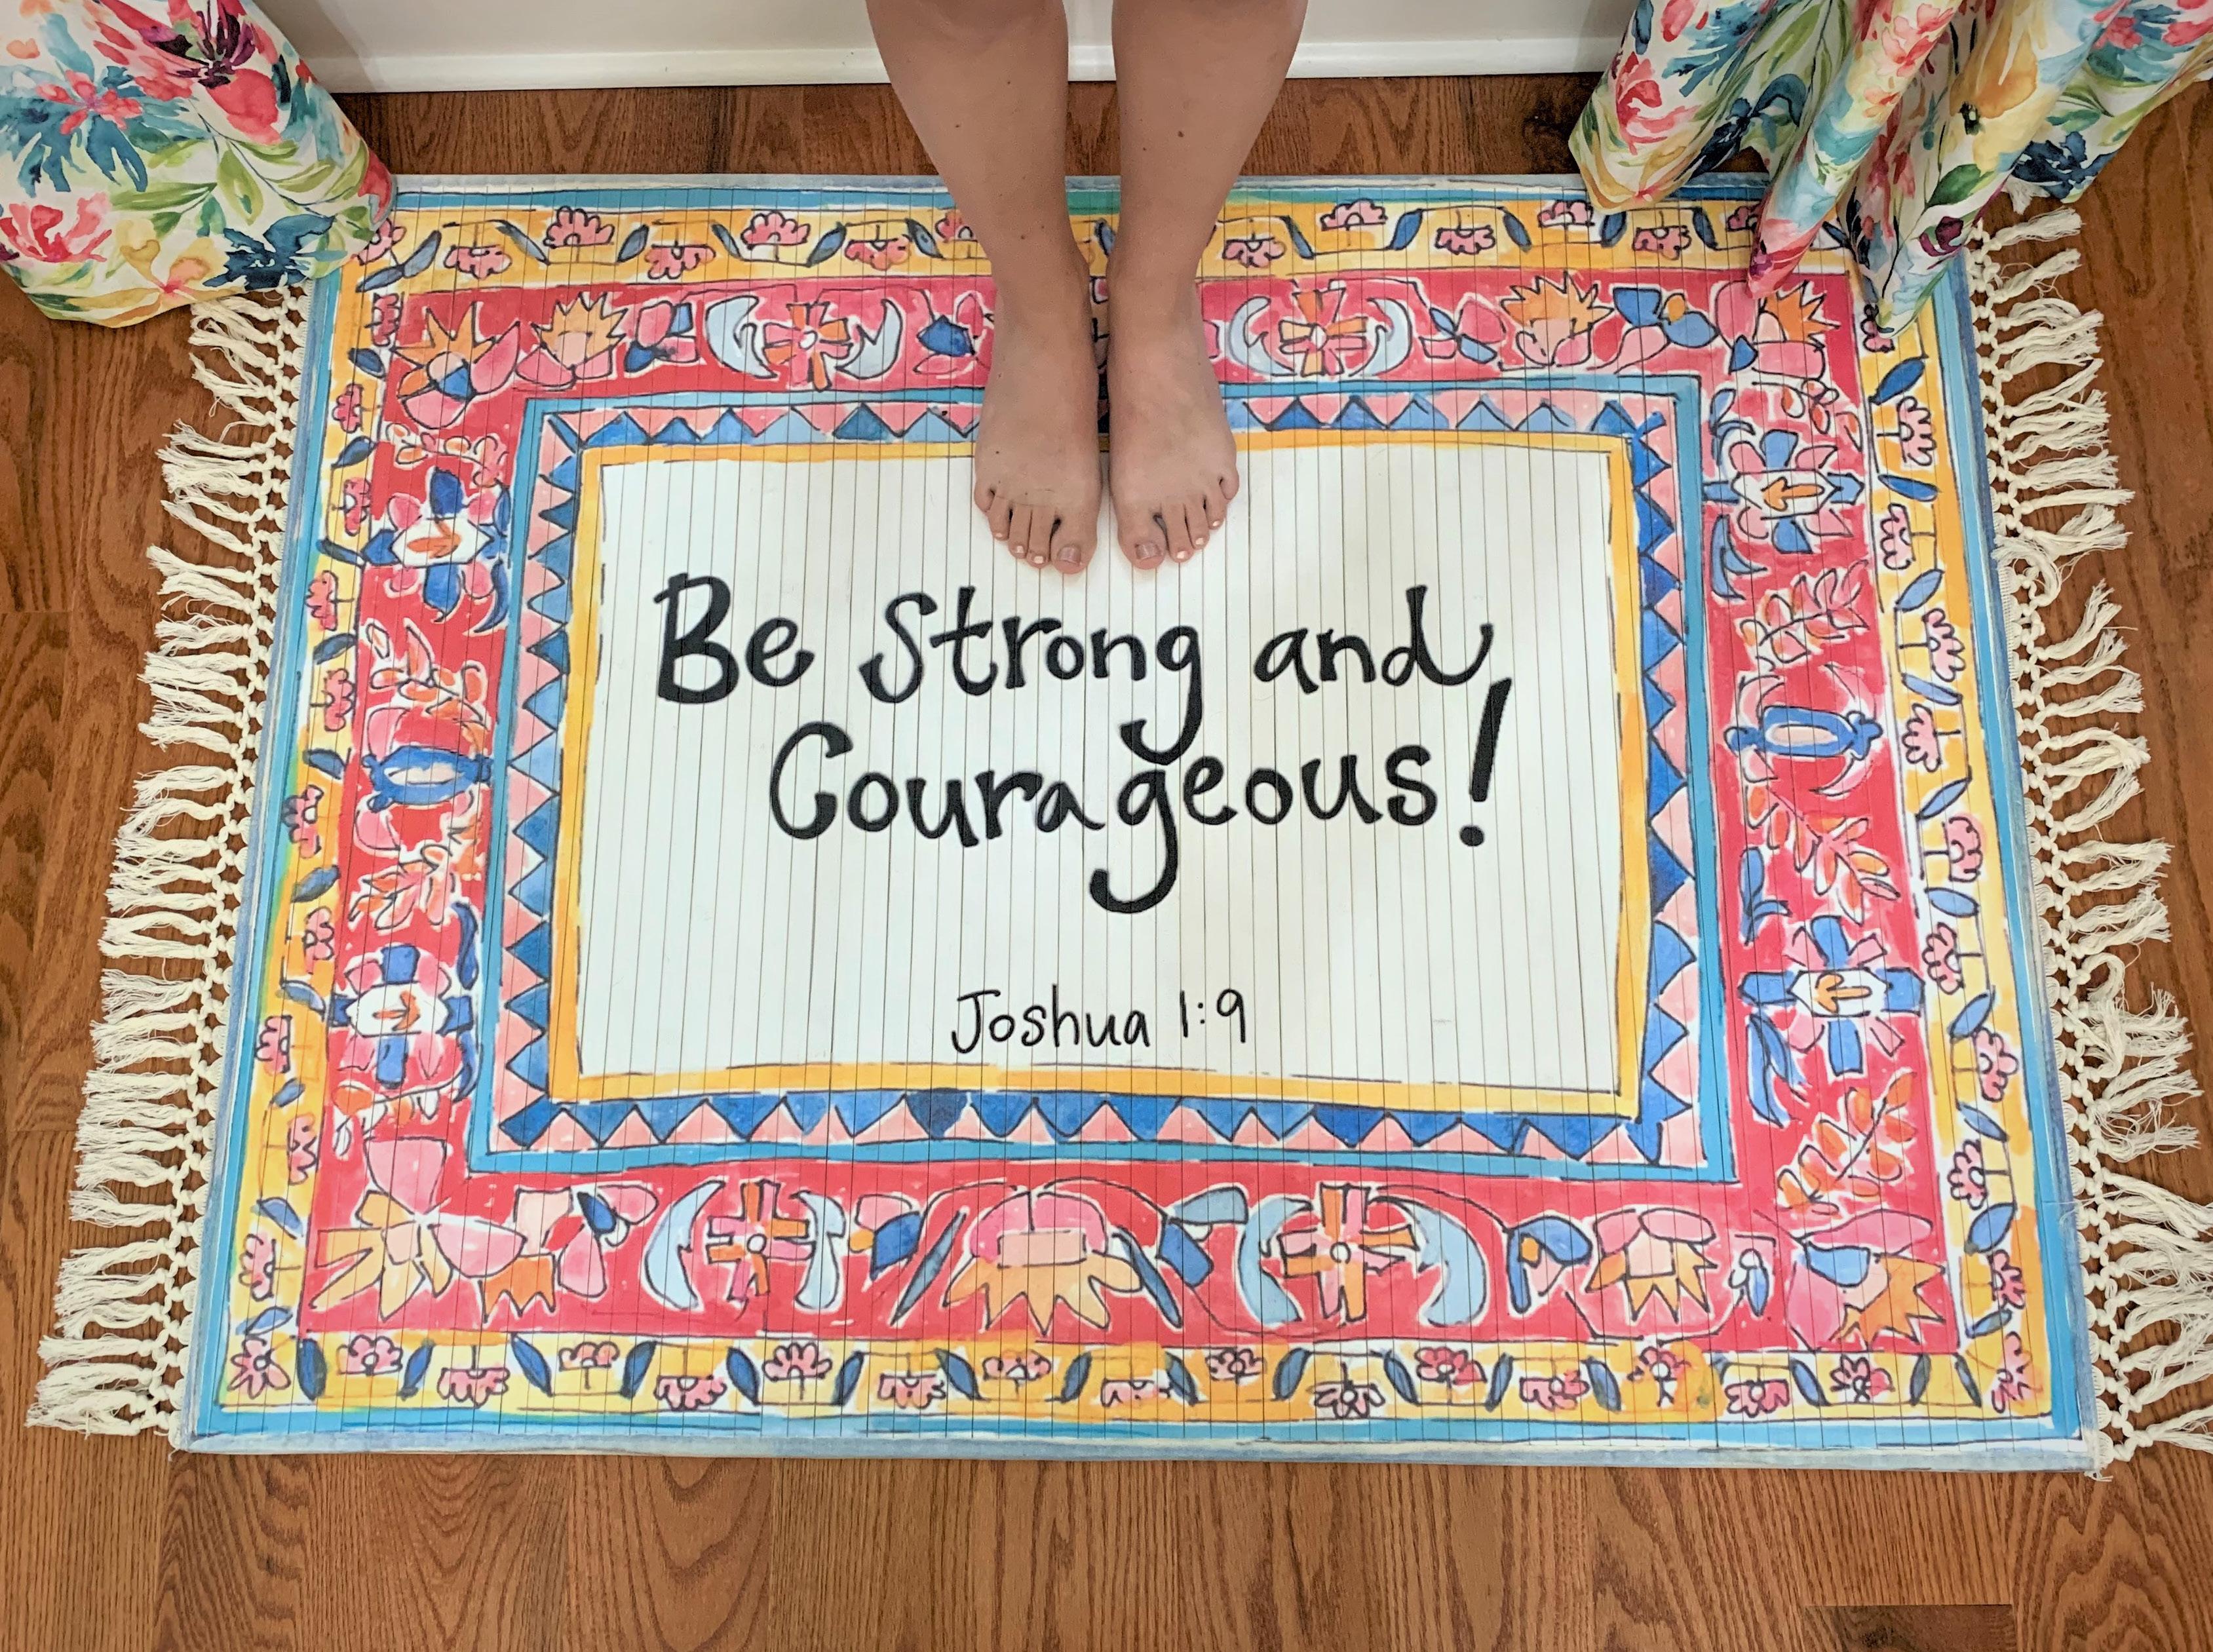 Be Strong and
Courageous!
Joshua 1:9